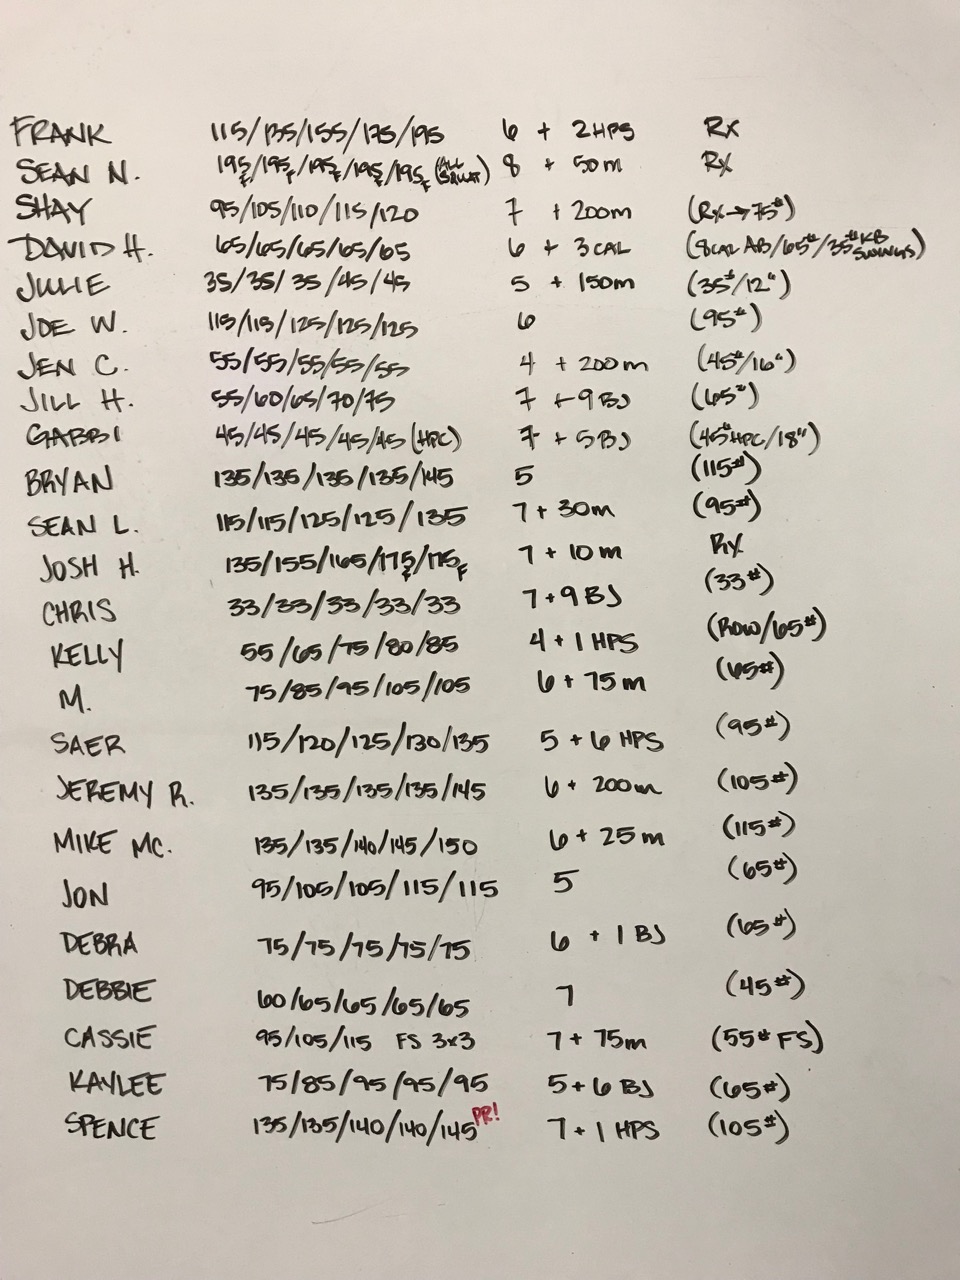 FRANK 115/135/155/175/195 6 + 2HPS RX
SEAN N. 195F/195F/195F/195F/195F (ALL SQUAT) 8 + 50m RX
SHAY 95/105/110/115/120 7 + 200m (RX→75#)
DAVID H. 65/65/65/65/65 6 + 3 CAL (8CAL AB/65#/35# KB SWINGS)
JULIE 35/35/35/45/45 5 + 150m (35#/12")
JOE W. 115/115/125/125/125 6 (95#)
JEN C. 55/55/55/55/55 4 + 200m (45#/16")
JILL H. 55/60/65/70/75 7 + 9 BJ (65#)
GABBI 45/45/45/45/45 (HPC) 7 + 5BJ (45# HPC/18")
BRYAN 135/135/135/135/145 5 (115#)
SEAN L. 115/115/125/125/135 7 + 30m (95#)
JOSH H. 135/155/165/175F/175F 7 + 10m RX
CHRIS 33/33/33/33/33 7 + 9 BJ (33#)
KELLY 55/65/75/80/85 4 + 1 HPS (ROW/65#)
M. 75/85/95/105/105 6 + 75m (65#)
SAER 115/120/125/130/135 5 + 6 HPS (95#)
JEREMY R. 135/135/135/135/145 6 + 200m (105#)
MIKE MC. 135/135/140/145/150 6 + 25m (115#)
JON 95/105/105/115/115 5 (65#)
DEBRA 75/75/75/75/75 6 + 1 BJ (65#)
DEBBIE 60/65/65/65/65 7 (45#)
CASSIE 95/105/115 FS 3x3 7 + 75m (55# FS)
KAYLEE 75/85/95/95/95 5 + 6 BJ (65#)
SPENCE 135/135/140/140/145 PR! 7 + 1 HPS (105#)